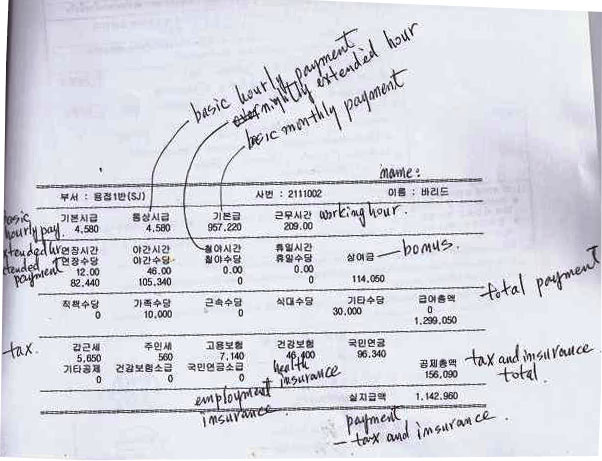 basic hourly payment
nightly extended hour
basic monthly payment
name:
부서 : 용접1반(SJ) 사번 : 2111002 이름 : 바리드
basic hourly pay. 기본시급 통상시급 기본급 근무시간 working hour.
4,580 4,580 957,220 209.00
extended hr 연장시간 야간시간 철야시간 휴일시간
extended payment 연장수당 야간수당 철야수당 휴일수당 상여금 bonus.
12.00 46.00 0.00 0.00
82.440 105,340 0 0 114,050
직책수당 가족수당 근속수당 식대수당 기타수당 급여총액 total payment
0 10,000 0 0 30,000 0
1,299,050
tax. 갑근세 주민세 고용보험 건강보험 국민연금
5,650 560 7,140 46,400 96,340
기타공제 건강보험소급 국민연금소급 health insurance 공제총액 tax and insurance total.
0 0 0 156,090
employment insurance. 실지급액 1,142,960
payment
- tax and insurance.